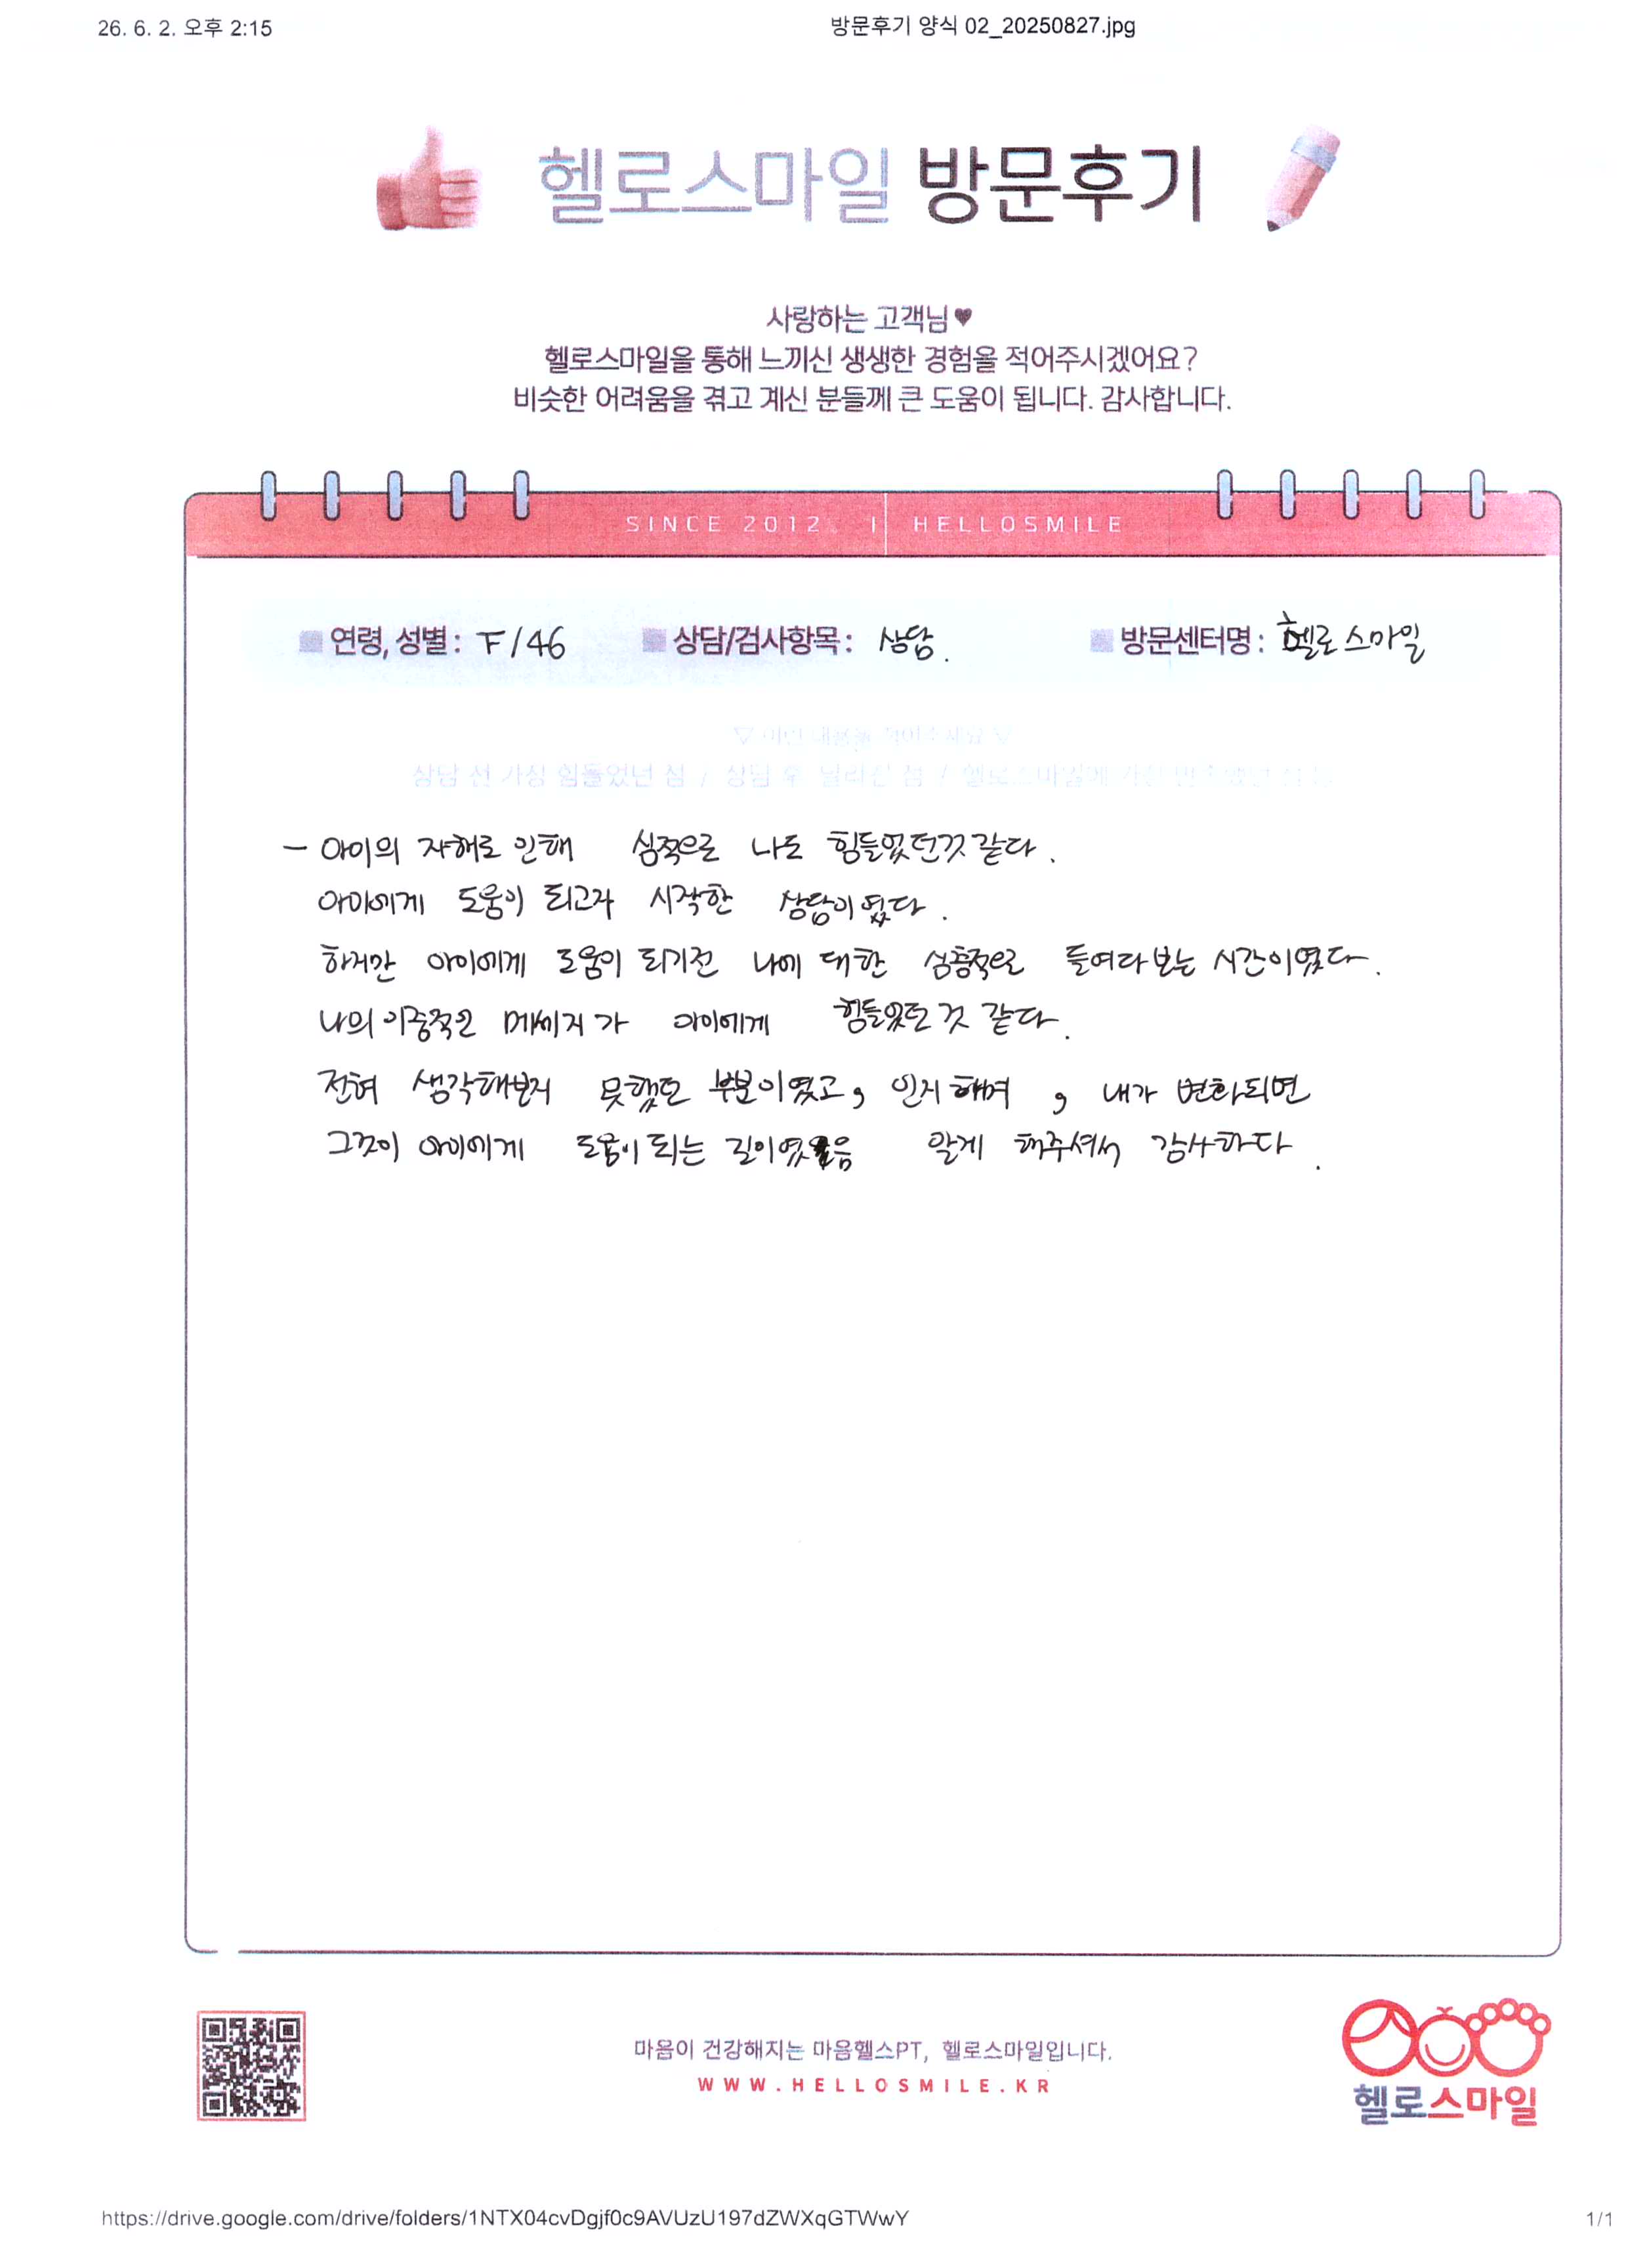 26. 6. 2. 오후 2:15
방문후기 양식 02_20250827.jpg
헬로스마일 방문후기
사랑하는 고객님♥
헬로스마일을 통해 느끼신 생생한 경험을 적어주시겠어요?
비슷한 어려움을 겪고 계신 분들께 큰 도움이 됩니다. 감사합니다.
SINCE 2012. | HELLOSMILE
연령, 성별 : F/46
상담/검사항목 : 상담.
방문센터명 : 헬로스마일
▽ 이런 내용을 적어주세요 ▽
상담 전 가장 힘들었던 점 / 상담 후 달라진 점 / 헬로스마일에 가장 만족했던 점 등
- 아이의 자해로 인해 심적으로 나도 힘들었던것 같다.
아이에게 도움이 되고자 시작한 상담이였다.
하지만 아이에게 도움이 되기전 나에 대한 심층적으로 들여다보는 시간이였다.
나의 이중적인 메세지가 아이에게 힘들었던 것 같다.
전혀 생각해본지 못했던 부분이였고, 인지해며, 내가 변화되면
그것이 아이에게 도움이 되는 길이였음 알게 해주셔서 감사하다.
마음이 건강해지는 마음헬스PT, 헬로스마일입니다.
WWW.HELLOSMILE.KR
헬로스마일
https://drive.google.com/drive/folders/1NTX04cvDgjf0c9AVUzU197dZWXqGTWwY
1/1